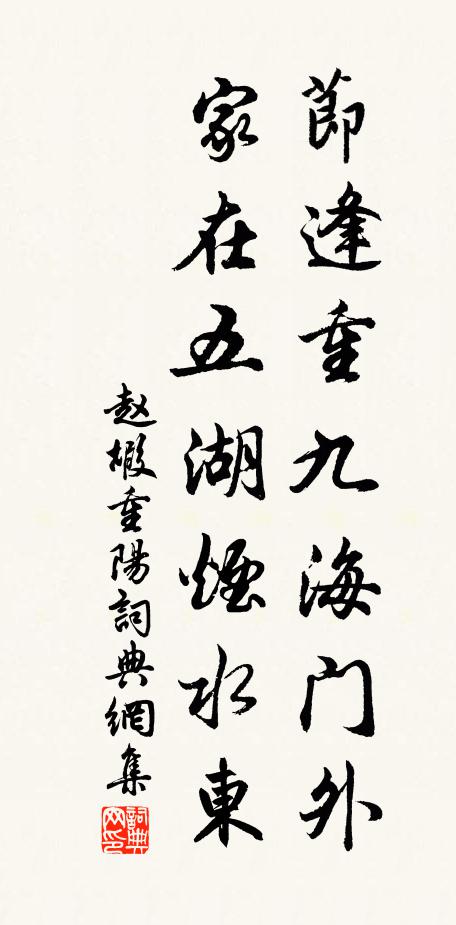 節逢重九海門外
家在五湖煙水東
赵嘏重陽詞典網集
詞典網印